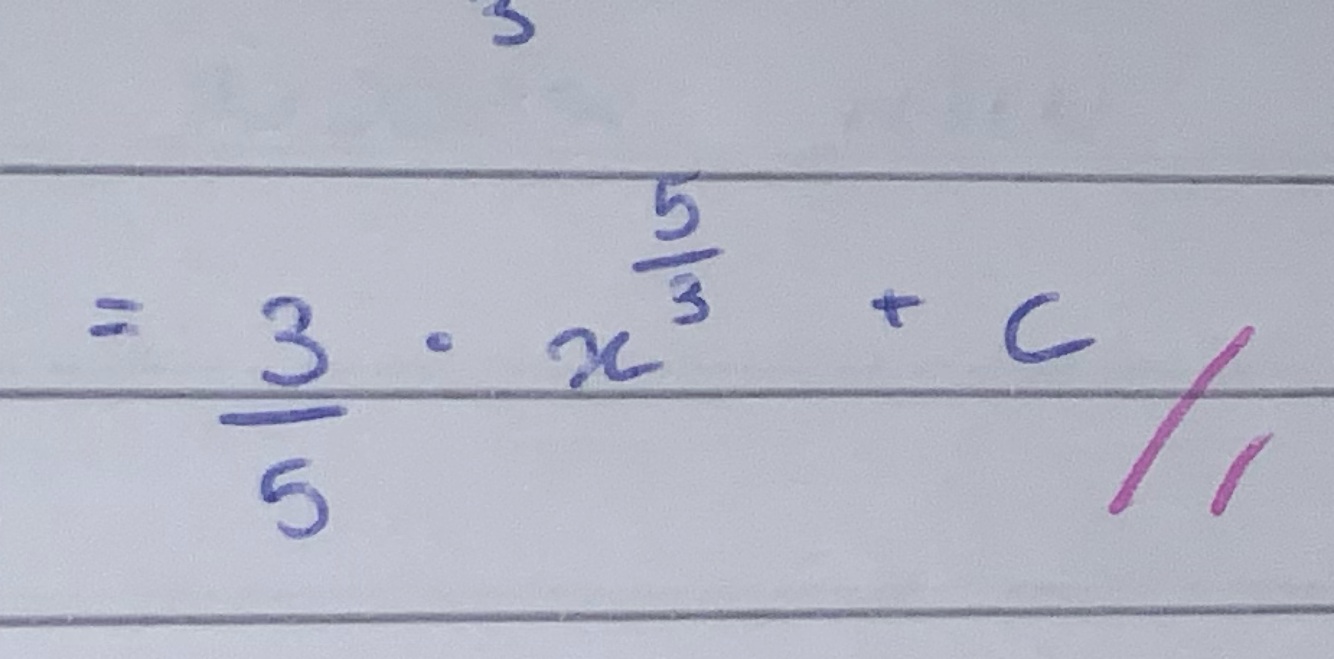 3
= 3/5 · x^(5/3) + C //